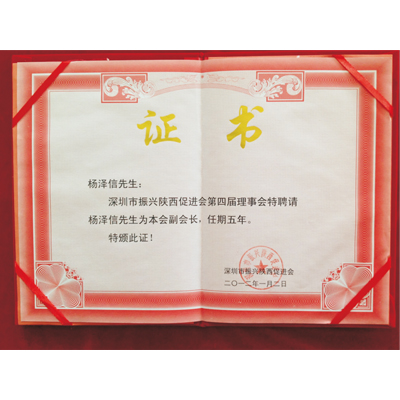 证书
杨泽信先生：
深圳市振兴陕西促进会第四届理事会特聘请
杨泽信先生为本会副会长，任期五年。
特颁此证！
深圳市振兴陕西促进会
二〇一二年一月二日